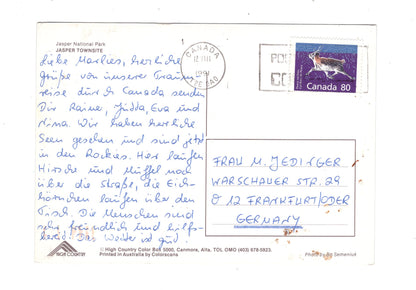 Jasper National Park
JASPER TOWNSITE
Liebe Marlies, herzliche
grüße von unserer Traum-
reise durch Canada senden
Dir Rainer, Jutta, Eva und
Nina. Wir haben herrliche
Seen gesehen und sind jetzt
in den Rockies. Hier laufen
Hirsche und Müffel noch
über die Straße, die Eich-
hörnchen laufen über den
Tisch. Die Menschen sind
sehr freundlich und hilfs-
bereit. Das Wetter ist gut.
CANADA
1991
Canada 80
FRAU M. JEDINGER
WARSCHAUER STR. 29
O 12 FRANKFURT/ODER
GERMANY
HIGH COUNTRY
© High Country Colour Box 5000, Canmore, Alta. T0L 0M0 (403) 678-5923.
Printed in Australia by Colorscans
Photo by